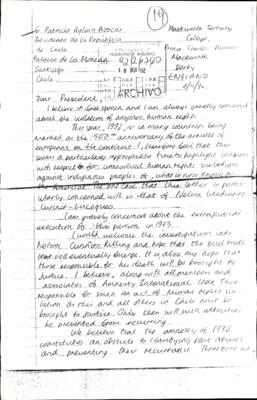 Sr. Patricio Aylwin Azocar
Presidente de la República
de Chile
Palacio de la Moneda
Santiago
Chile.
Mackworth Tertiary
College,
Prince Charles Avenue
Mackworth
Derby
ENGLAND
18 NOV 92
ARCHIVO
Dear President,
I believe in free speech and I am always greatly concerned
about the violation of anyones human rights.
This year, 1992, is in many countries being
marked as the 500th anniversary of the arrival of
europeans on the continent. I therefore feel that this
seems a particularly appropriate time to highlight concerns
with respect to human rights violations
against indigenous peoples of what is now known as
the Americas. The one case that this letter is partic-
ularly concerned with is that of Nelson
Curiñir
I am gravely concerned about the extrajudicial
execution of this person in 1973.
I would welcome the investigation into
Nelson Curiñir's killing and hope that the full truth
will eventually emerge. It is also my hope that
those responsible for his death will be brought to
justice. I believe, along with all members and
associates of Amnesty International that those
responsible for such an act of human rights vio-
lation as this and all others in Chile must be
brought to justice. Only then will such atrocities
be prevented from recurring.
We believe that the amnesty of 1978
constitutes an obstacle to clarifying past abuses
and preventing their recurrence. Therefore we